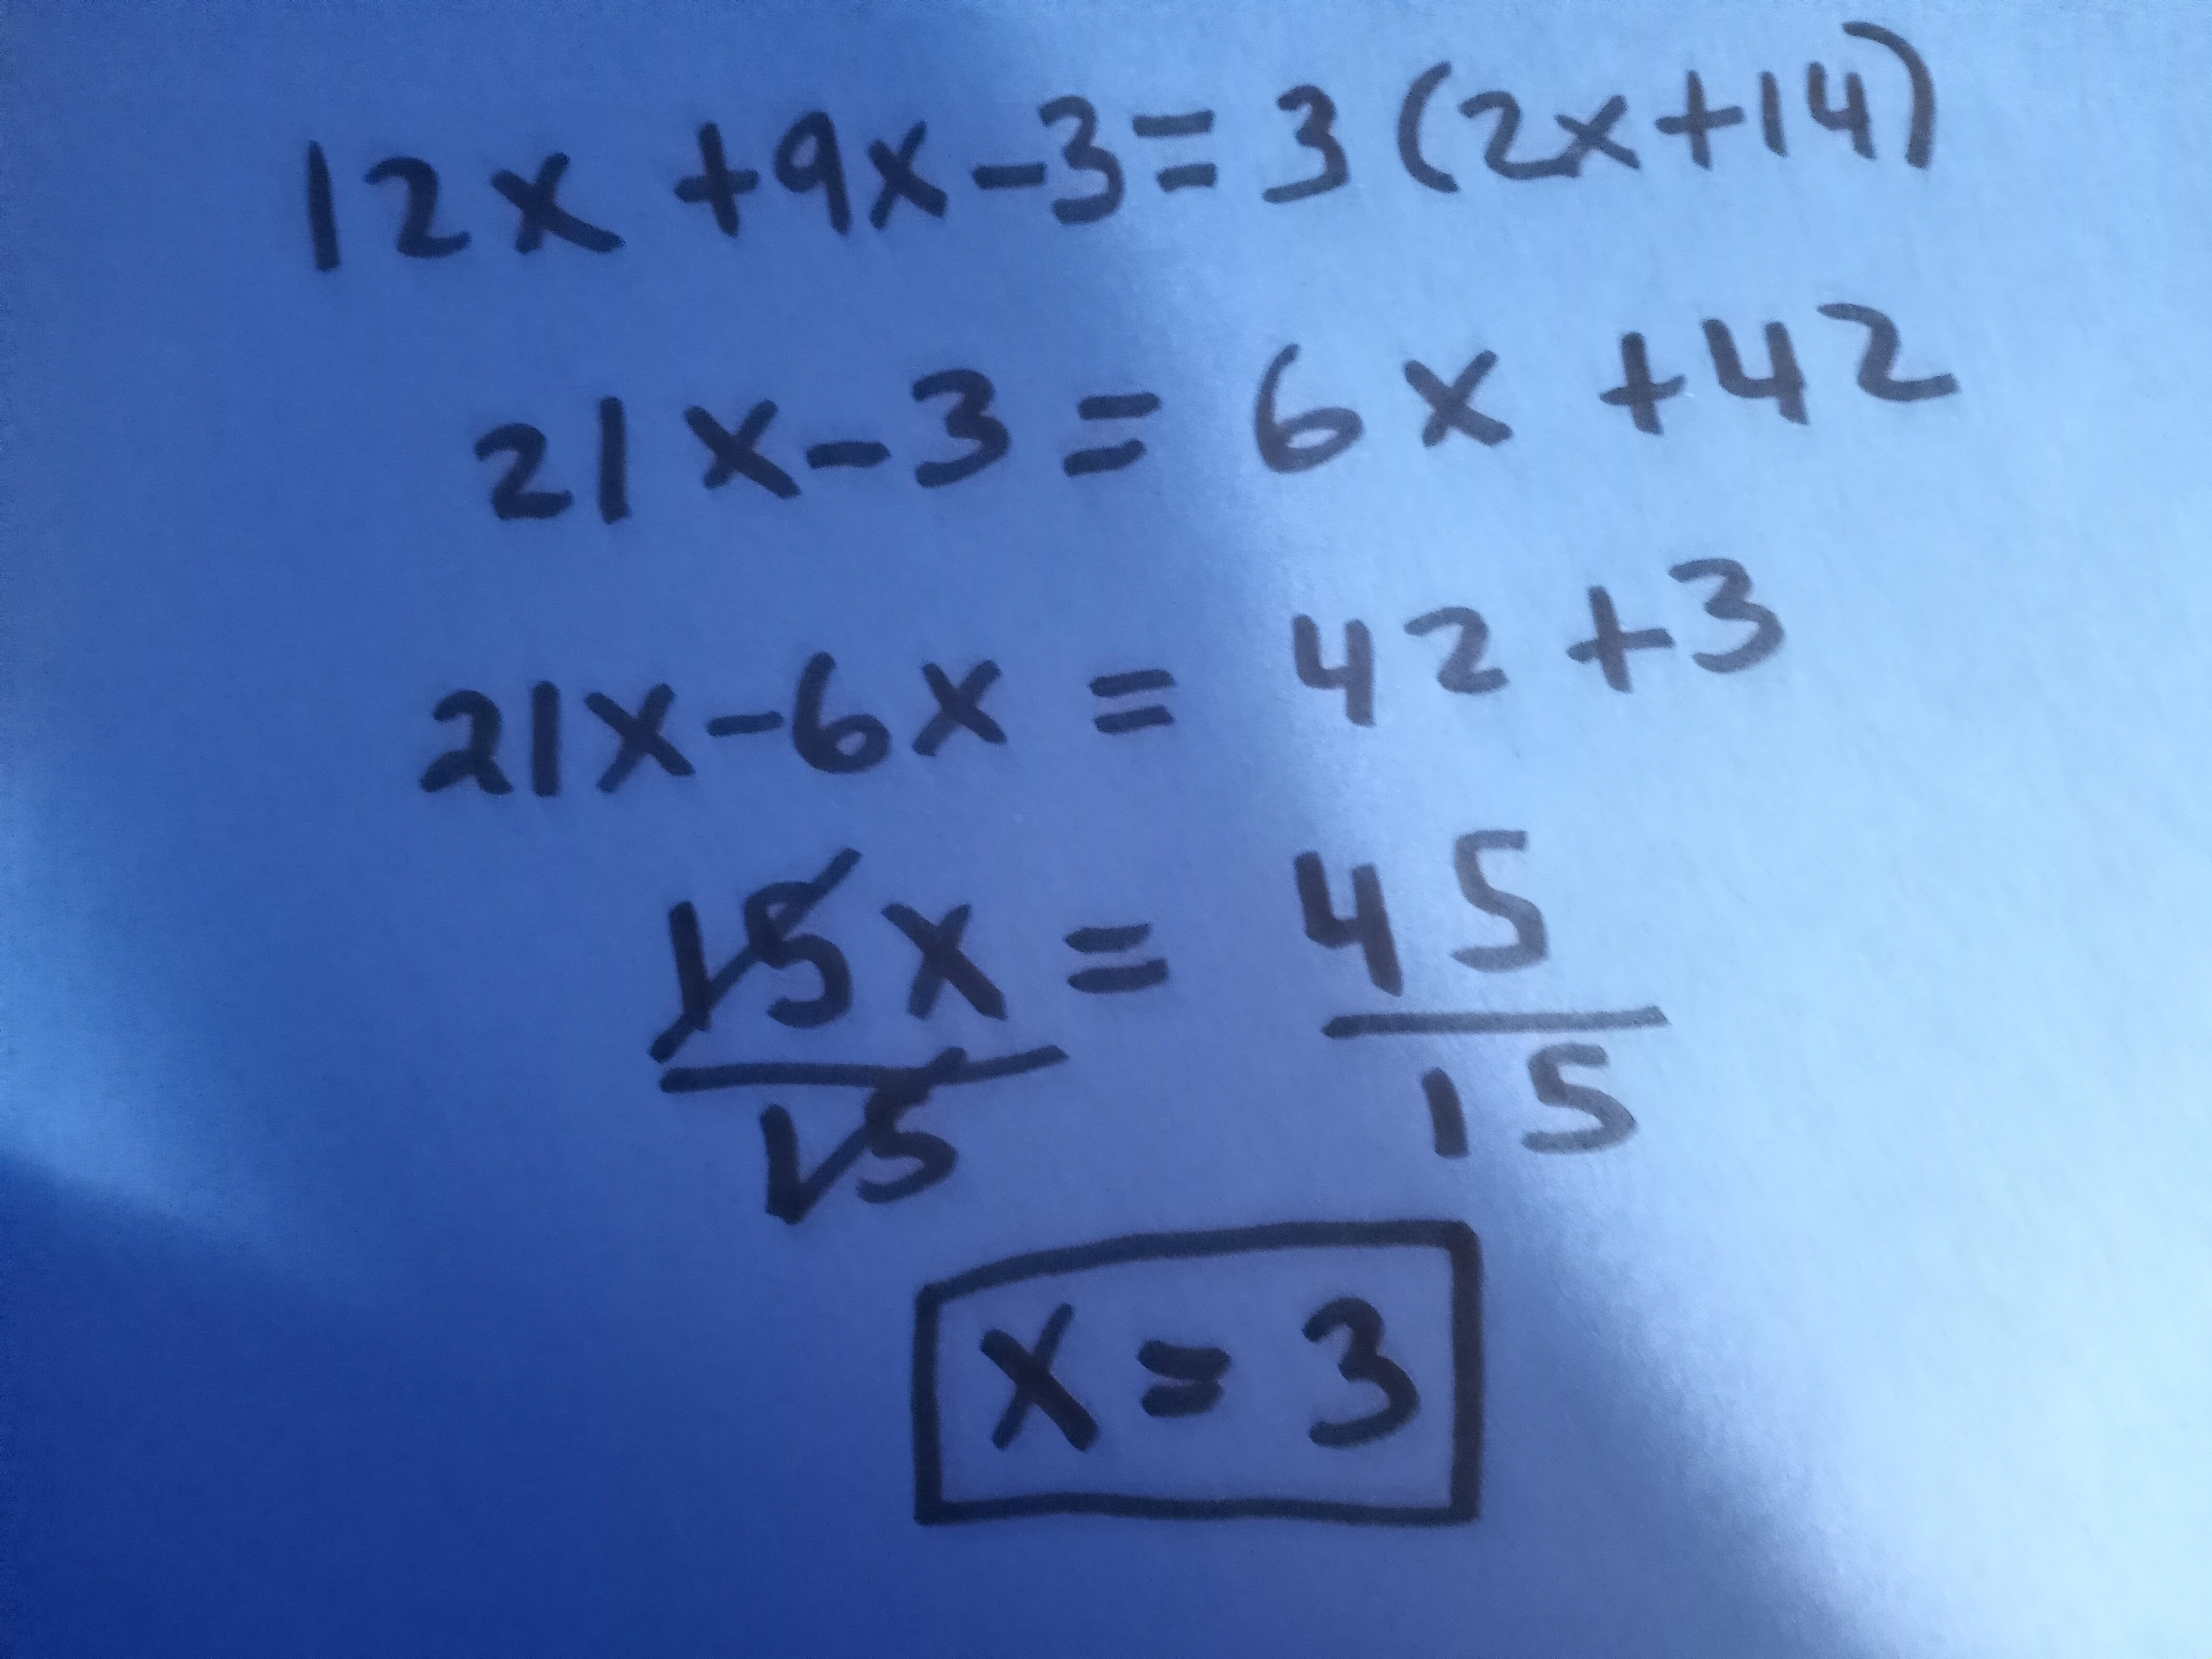 12x +9x-3=3(2x+14)
21x-3=6x+42
21x-6x=42+3
15x=45
15 15
x=3